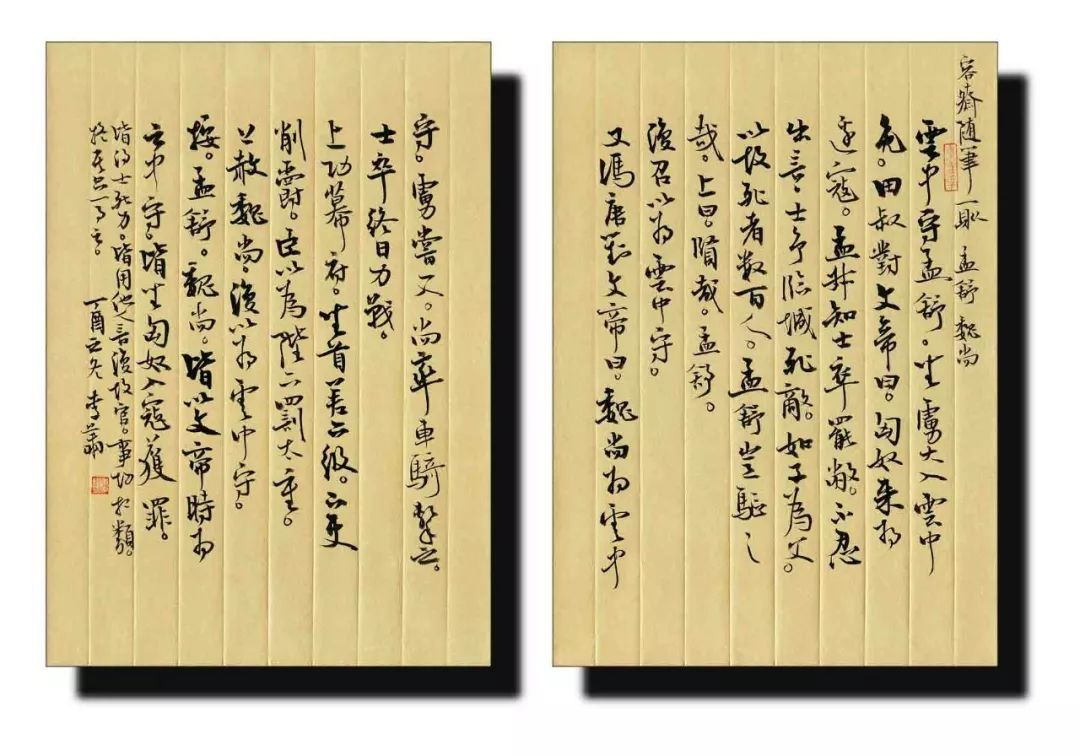 容齋随筆 一 孟舒 魏尚
雲中守孟舒。坐虜大入雲中
免。田叔對文帝曰。匈奴来为
邊寇。孟舒知士卒罷敝。不忍
出言。士争臨城死敵。如子為父。
以故死者数百人。孟舒豈驅之
哉。上曰。賢哉。孟舒。
復召以为雲中守。
又馮唐對文帝曰。魏尚为雲中
守。虜嘗入。尚率車騎擊之。
士卒終日力戰。
上功幕府。坐首差六級。下吏
削爵。臣以為陛下罰太重。
上赦魏尚。復以为雲中守。
按。孟舒。魏尚。皆以文帝時为
雲中守。皆坐匈奴入寇獲罪。
皆得士死力。皆用他人言復故官。事切相類。
疑其只一事云。
丁酉之冬 李